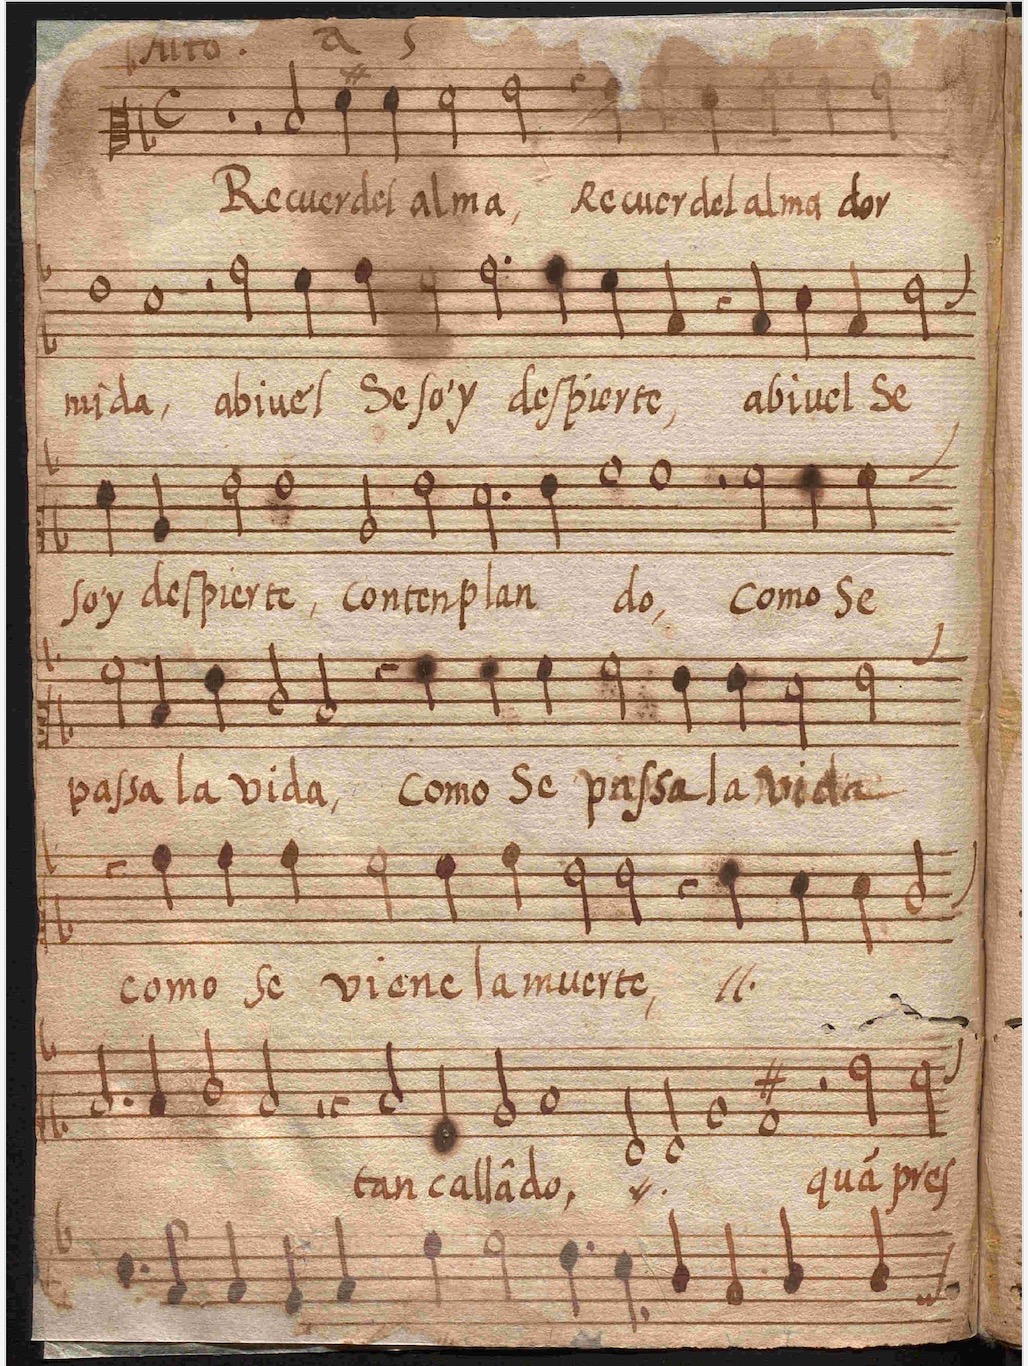 Alto. a 5
Recuerdel alma, Recuerdel alma dor
mida, abiuel Se so'y despierte, abiuel Se
so'y despierte, contenplan do, como Se
passa la vida, como Se passa la vida
como se viene la muerte, //.
tan callâdo, //. quâ pres